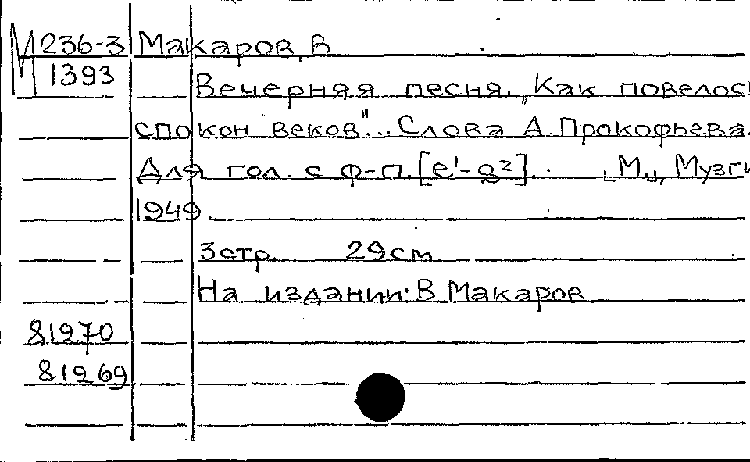 М236-3 Макаров, В
1393
Вечерняя песня. „Как повелось
спокон веков"... Слова А. Прокофьева.
Для гол. с ф-п. [e¹-g²]. М., Музги
1949.
3 стр. 29 см
На издании: В Макаров
81270
81269